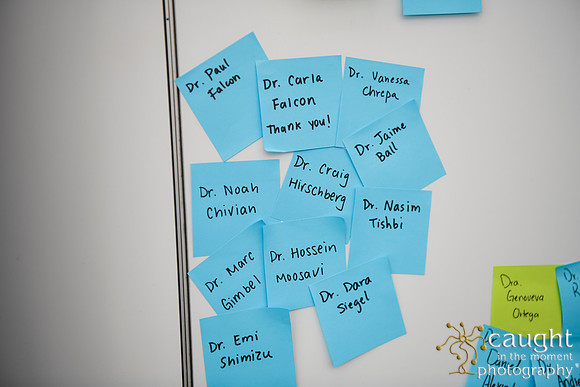 Dr. Paul
Falcon
Dr. Carla
Falcon
Thank you!
Dr. Vanessa
Chrepa
Dr. Jaime
Ball
Dr. Noah
Chivian
Dr. Craig
Hirschberg
Dr. Nasim
Tishbi
Dr. Marc
Gimbel
Dr. Hossein
Moosavi
Dr. Dara
Siegel
Dr. Emi
Shimizu
Dra.
Genoveva
Ortega
caught
in the moment
photography